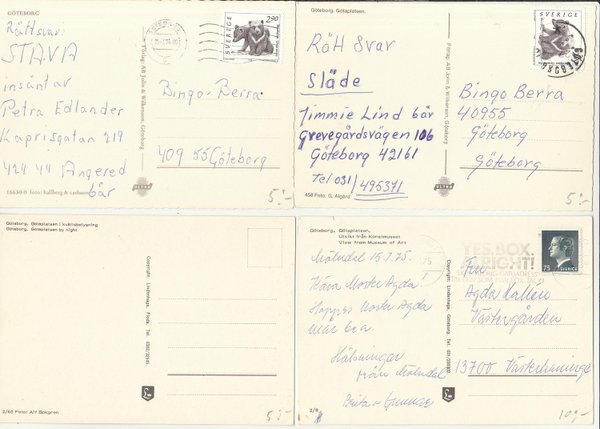 GÖTEBORG
Rätt svar:
STAVA
insänt av
Petra Edlander
Kaprisgatan 219
424 44 Angered
bär
16630-0 Foto: hallberg &
Förlag: AB John & Wikström, Göteborg
ULTRA
SVERIGE 2.90
Bingo-Berra
409 55 Göteborg
5:-
Göteborg. Götaplatsen.
Rätt Svar
Släde
Jimmie Lind bär
Grevegårdsvägen 106
Göteborg 42161
Tel 031/495371
458 Foto: G. Algård
Förlag: AB John & Wikström, Göteborg
ULTRA
SVERIGE
GÖTEBORG
Bingo Berra
40955
Göteborg
Göteborg
5:-
Göteborg, Götaplatsen i kvällsbelysning
Göteborg, Götaplatsen by night
Copyright: Lindenhags, Foto.
2/60 Foto: Alf Bokgren
5:-
Göteborg, Götaplatsen,
Utsikt från Konstmuseet
View from Museum of Art
Mölndal 15.7.75.
Kära Moster Agda!
Hoppas Moster Agda
mår bra.
Hälsningar
från Mölndal
Brita o Gunnar
2/8
Copyright: Lindenhags, Göteborg
YES BOX
ALRIGHT!
75 SVERIGE
Fru
Agda Hallén
Västergården
13700 Västerhaninge
10:-